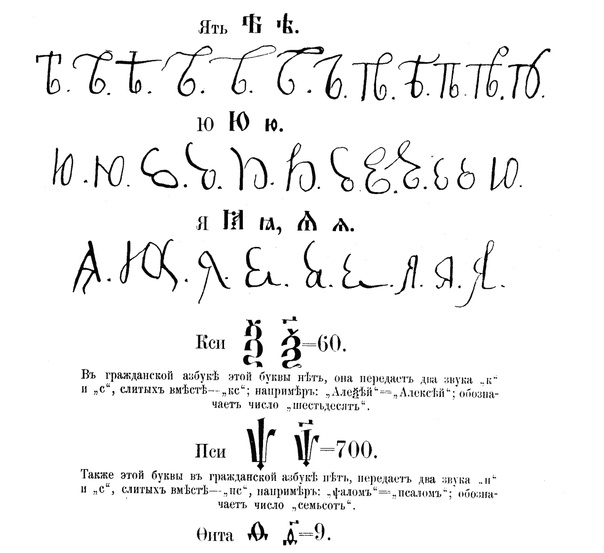 Ять Ѣ ѣ.
ѣ. ѣ. ѣ. ѣ. ѣ. ѣ. ѣ. ѣ. ѣ. ѣ. ѣ. ѣ.
ю Ю ю.
Ю. Ю. ю. ю. ю. ю. ю. ю. ю. ю ю. ю.
Я Ꙗ ꙗ, Ѧ ѧ.
Я. Я. я. я. я. я. я. я. я.
Кси Ѯ Ѯ=60.
Въ гражданской азбукѣ этой буквы нѣтъ, она передаетъ два звука „к“
и „с“, слитыхъ вмѣстѣ—„кс“; напримѣръ: „Алеѯѣй“=„Алексѣй“; обозна-
чаетъ число „шестьдесятъ“.
Пси Ѱ Ѱ=700.
Также этой буквы въ гражданской азбукѣ нѣтъ, передаетъ два звука „п“
и „с“, слитыхъ вмѣстѣ—„пс“, напримѣръ: „ѱаломъ“=„псаломъ“; обозна-
чаетъ число „семьсотъ“.
Ѳита Ѳ ѳ=9.